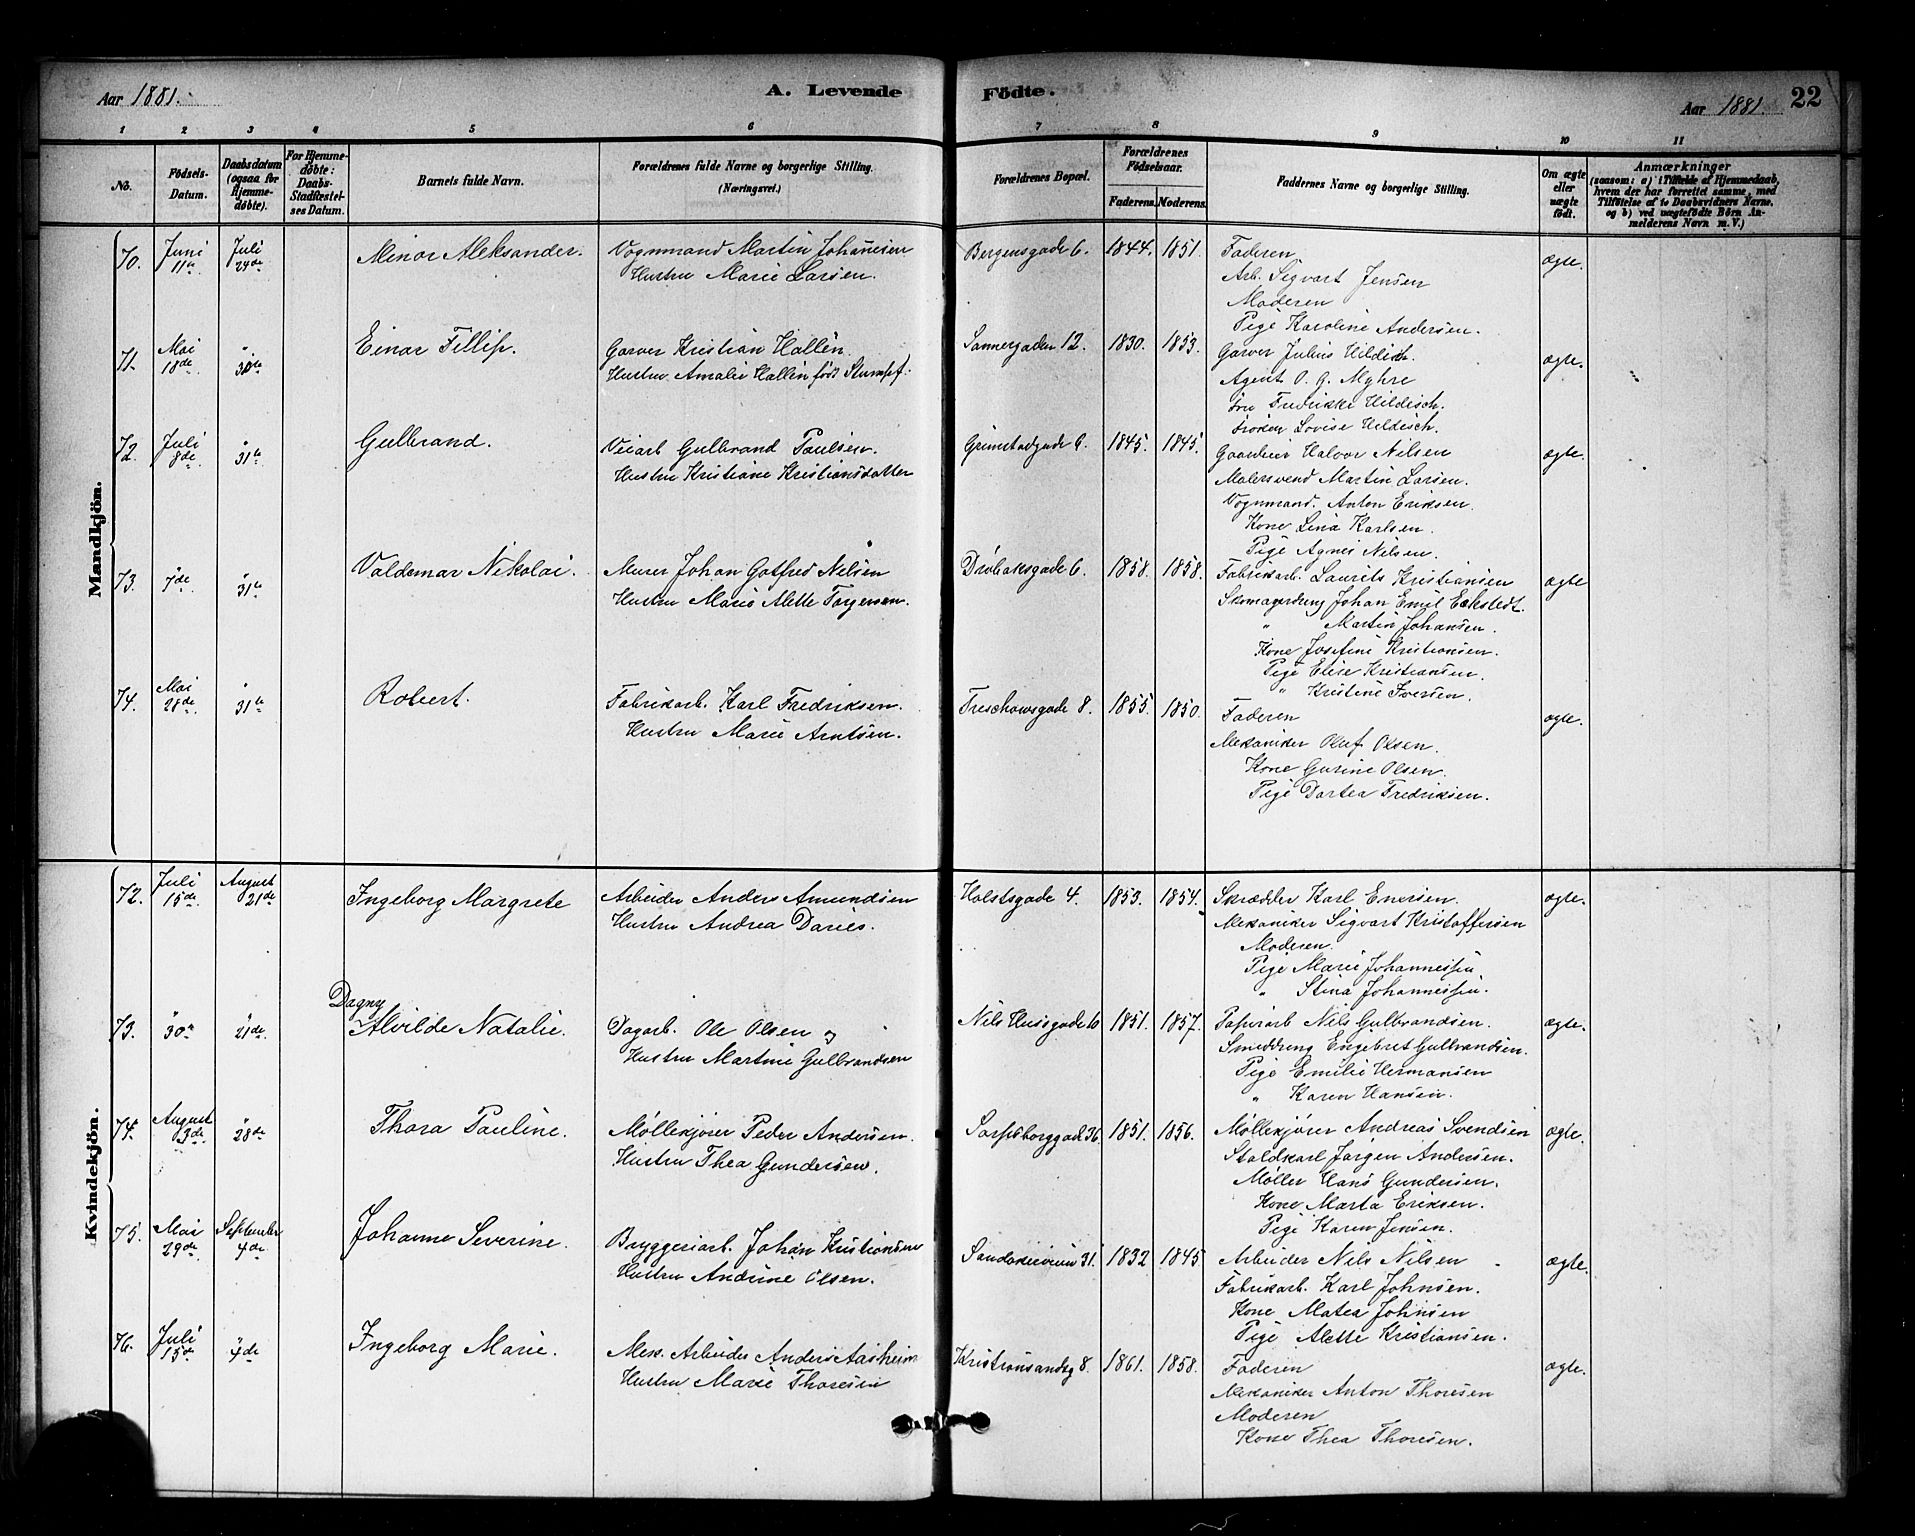 Aar 1881.
A. Levende Födte.
Aar 1881.
22
1 2 3 4 5 6 7 8 9 10 11
No.
Födsels-Datum.
Daabsdatum (ogsaa for Hjemme-döbte).
For Hjemme-döbte: Daabs-Stadfæstel-ses Datum.
Barnets fulde Navn.
Forældrenes fulde Navne og borgerlige Stilling. (Næringsvei.)
Forældrenes Bopæl.
Forældrenes Födselsaar.
Faderens. Moderens.
Faddernes Navne og borgerlige Stilling.
Om ægte eller uægte födt.
Anmærkninger
(saasom: a) i Tilfælde af Hjemmedaab, hvem der har forrettet samme, med Tilföielse af to Daabsvidners Navne, og b) ved uægtefödte Börn An-melderens Navn m. V.)
Mandkjön.
70. Juni 11te Juli 24de Minor Aleksander. Vognmand Martin Johansen Bergensgade 6. 1844. 1851. Faderen ægte.
Hustru Marie Larsen.
Arb. Sigvart Jensen
Moderen
Pige Karoline Andersen.
71. Mai 18de " 30te Einar Fillip. Garver Kristian Hallén. Sannergaden 12. 1830. 1853. Garver Julius Hildisch. ægte.
Hustru Amalie Hallén født Stumpf.
Agent O. G. Myhre
Fru Fredrikke Hildisch.
Frøken Lovise Hildisch.
72. Juli 8de " 31te Gulbrand. Veiarb Gulbrand Paulsen. Grimstadgade 6. 1845. 1845. Halvor Nilsen ægte.
Hustru Kristiane Kristiansdatter
Malersvend Martin Larsen.
Vognmand. Anton Eriksen.
Kone Lina Karlsen.
Pige Agnes Nilsen.
73. " 7de " 31te Valdemar Nikolai. Murer Johan Gotfred Nilsen Drøbaksgade 6. 1858. 1858. Fabrikarb. Laurits Kristiansen ægte
Hustru Marie Alette Torgersen.
Skomagerdreng Johan Emil Eckstedt.
" Martin Johansen.
Kone Josefine Kristiansen.
Pige Elise Kristiansen.
" Kristine Iversen.
74. Mai 28de " 31te Robert. Fabrikarb. Karl Fredriksen. Treschowsgade 8. 1855. 1850. Faderen ægte.
Hustru Marie Arntsen.
Mekaniker Oluf Olsen.
Kone Gurine Olsen.
Pige Dortea Fredriksen.
Kvindekjön.
72. Juli 15de August 21de Ingeborg Margrete Arbeider Anders Amundsen Holstsgade 4. 1853. 1854. Skrædder Karl Enersen. ægte.
Hustru Andrea Daries.
Mekaniker Sigvart Kristoffersen
Moderen.
Pige Marie Johannessen.
" Stina Johannessen.
Dagny
73. " 30te " 21de Alvilde Natalie. Dagarb. Ole Olsen og Nils Husgade 10 1851. 1857. Papirarb Nils Gulbrandsen. ægte.
Hustru Martine Gulbrandsen
Smeddreng Engebret Gulbrandsen.
Pige Emilie Hermansen
" Karen Hansen.
74. August 3de " 28de Thora Pauline. Møllekjører Peder Andersen. Sarpsborggad 36. 1851. 1856. Møllekjører Andreas Svendsen ægte.
Hustru Thea Gundersen.
Staldkarl Jørgen Andersen.
Møller Hans Gundersen.
Kone Marta Eriksen.
Pige Karen Jensen.
75. Mai 29de September 4de Johanne Severine. Bryggeriarb. Johan Kristiansen Sandakerveien 31. 1832 1845 Arbeider Nils Nilsen ægte.
Hustru Andrine Olsen.
Fabrikarb. Karl Johnsen.
Kone Matea Johnsen
Pige Alette Kristiansen.
76. Juli 15de " 4de Ingeborg Marie. Mek. Arbeider Anders Aasheim Kristiansandsg 8. 1861. 1858. Faderen ægte.
Hustru Marie Thoresen
Mekaniker Anton Thoresen
Moderen
Kone Thea Thoresen.